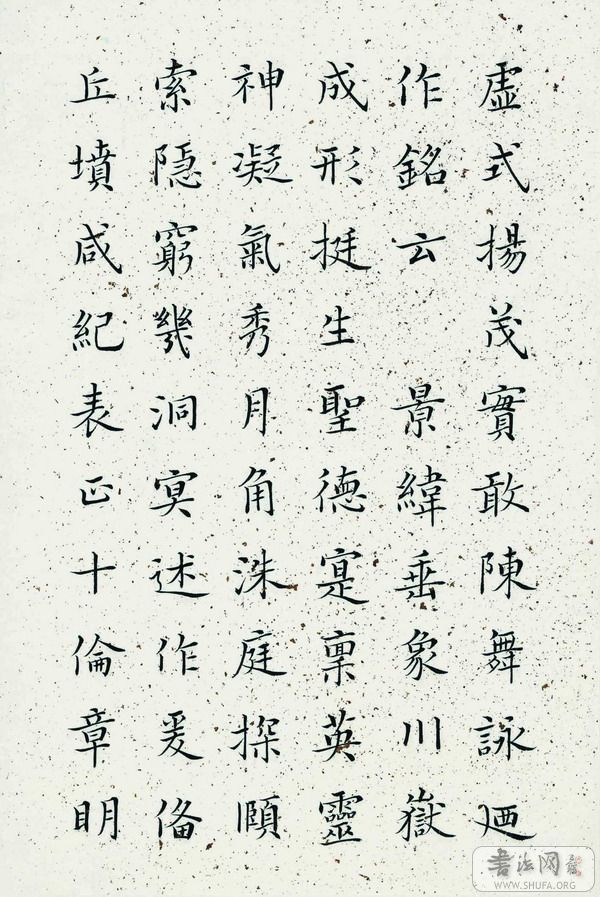 虚式揚茂實敢陳舞詠廼
作銘云 景緯垂象川嶽
成形挺生聖德寔禀英靈
神凝氣秀月角洙庭探頤
索隠窮幾洞冥述作爰俻
丘墳咸紀表正十倫章明
书法网
WWW.SHUFA.ORG